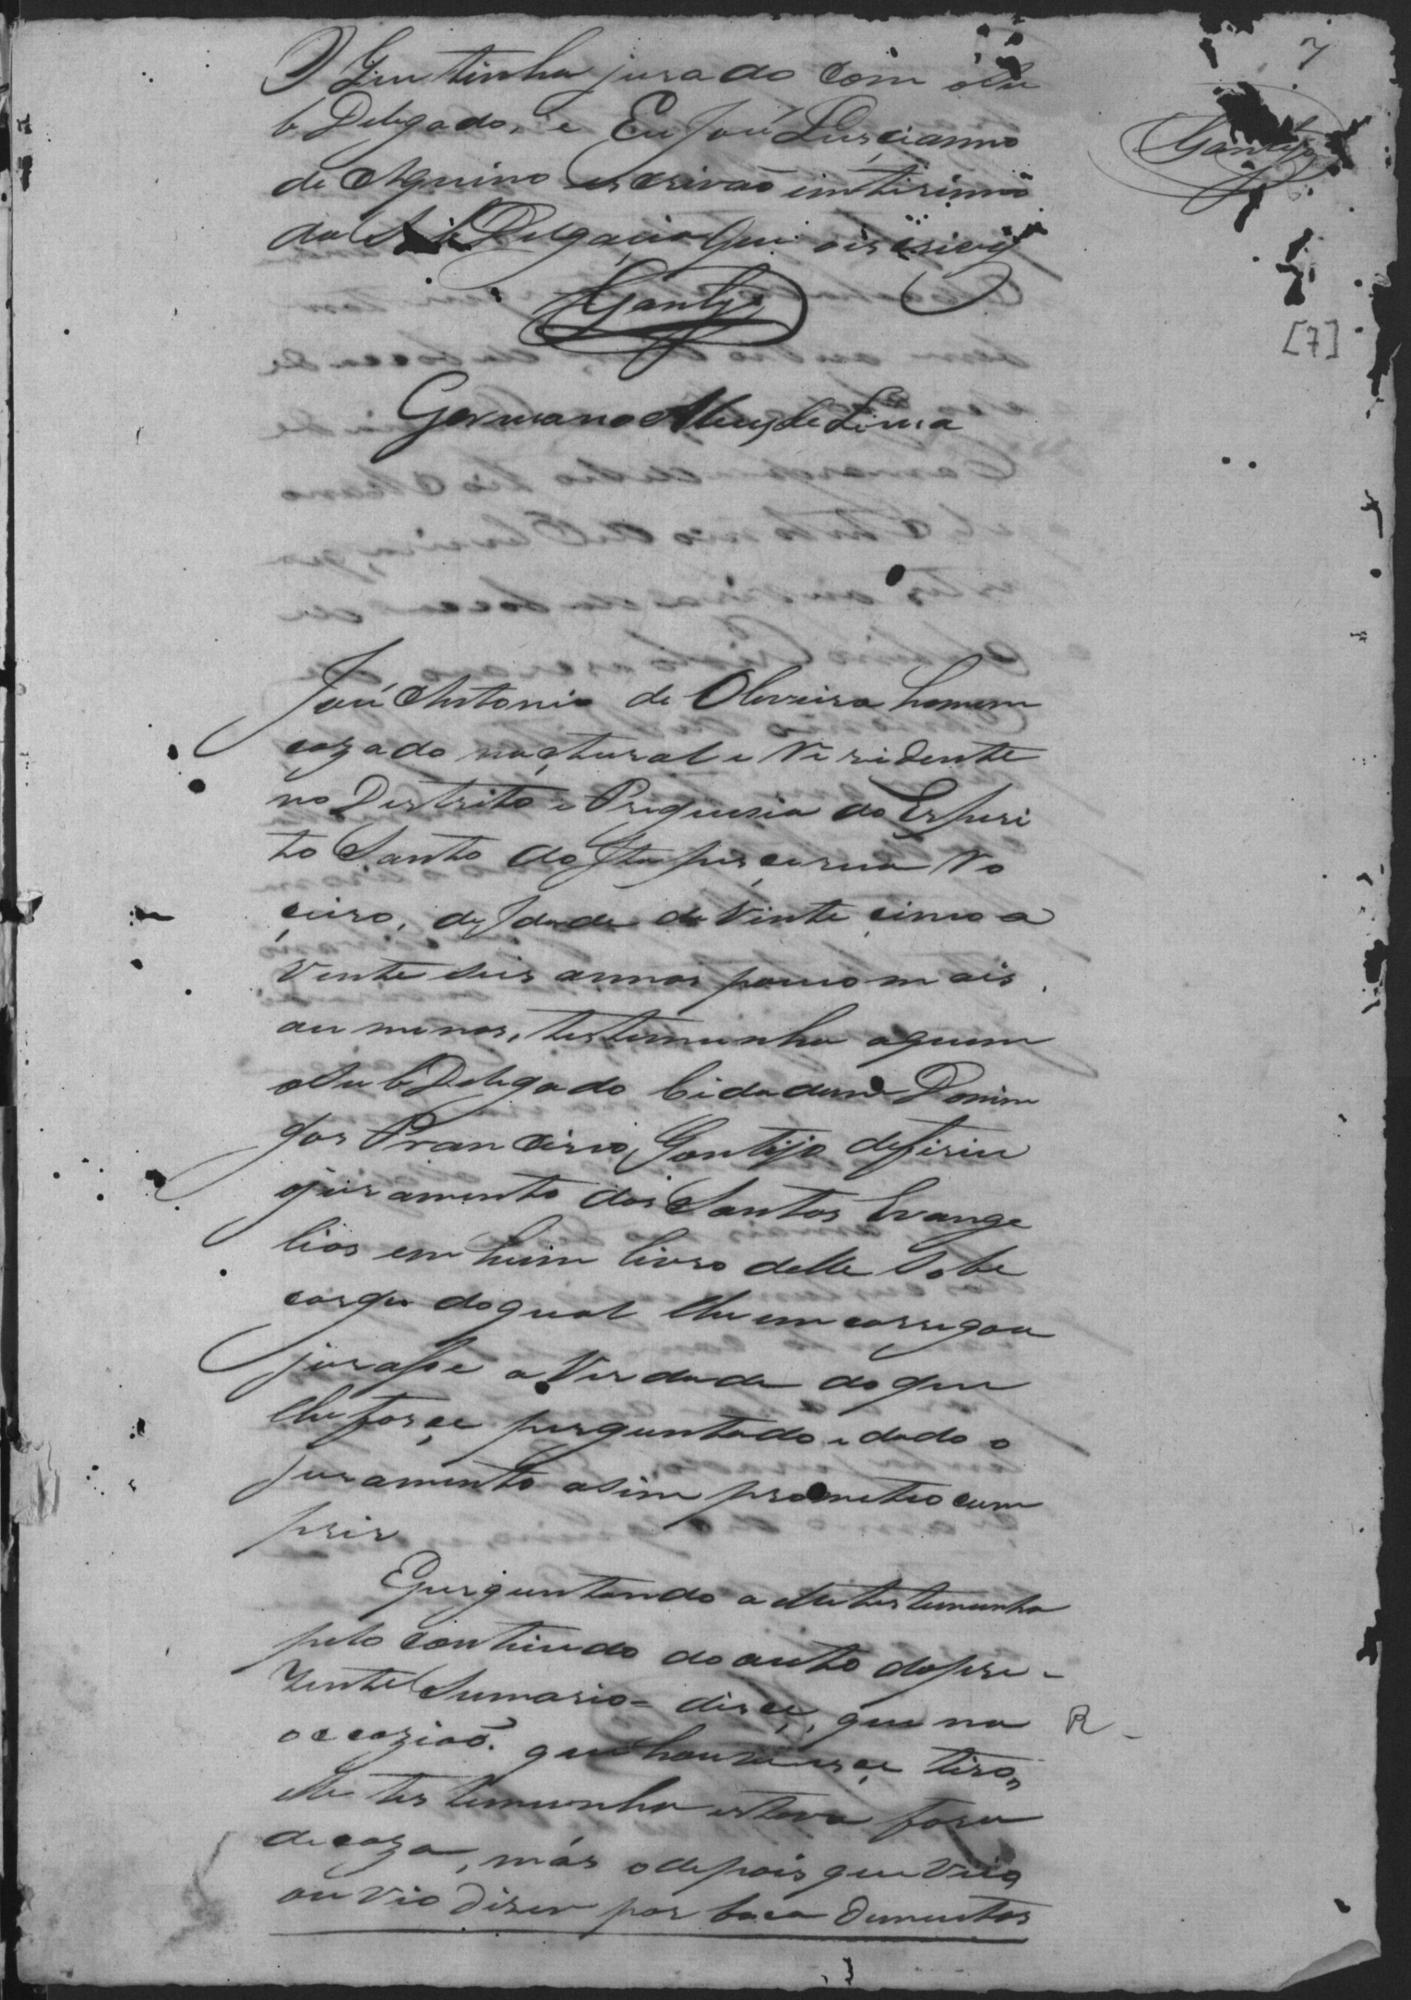 7
Gontijo
[7]
Que tinha jurado com oSu
b Delegado, e Eu José Lusçianno
de Aquino escrivaõ imtirinno
da Sub Delgaçia que oiscrivÿ
Gontijo
Germano Alves de Lima
José Antonio de Oliveira homem
cazado nactural e Rezidente
no Destrito e Freguesia do Espiri
to Santo do Itapeçerica Ro
çeiro, de Idade de Vinte çinco a
Vinte seis annos pouco mais
au menos, testemunha aquem
oSub Delegado Cidadam Domin
gos Françisco Gontijo defiriu
ojuramento dos Santos Evange
lios em huim livro delles Sobe
cargo doqual lhe emcarregou
jurasse a Verdade do que
lhe forçe perguntado e dado o
juramento asim prometeo cum
prir
Eperguntando a elle testemunha
pelo contiudo do auto dopre-
zente Sumario= disçe, que na
occaziaõ que houveirçe tiros,
elle testemunha estava fora
de caza, más odepois que Veio
ouvio dizer por boca demuitos
R-